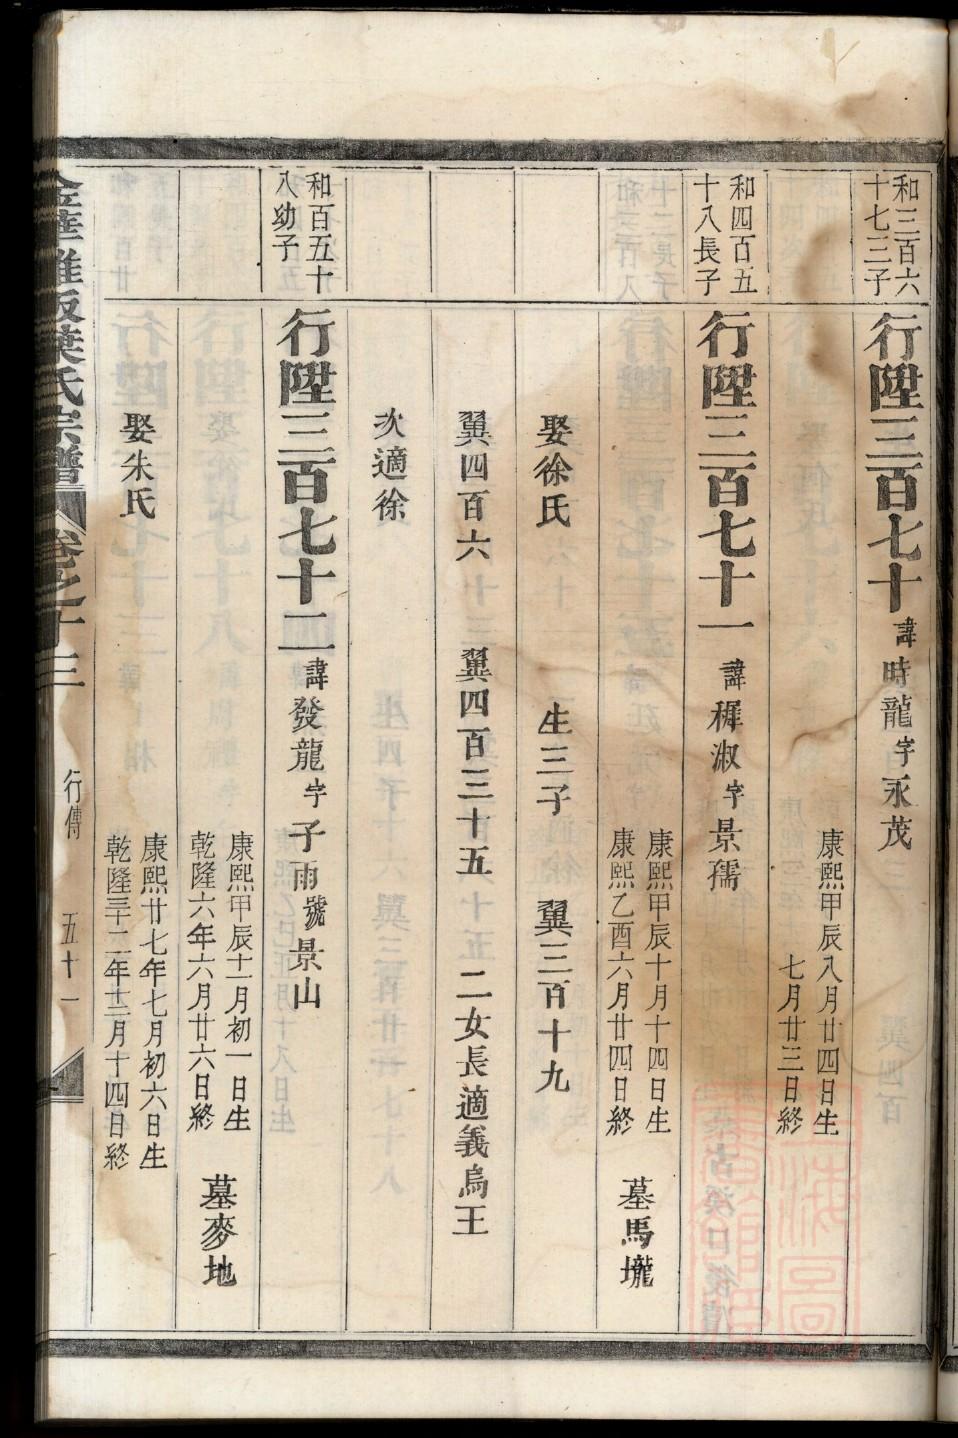 和三百六
十七三子
行陞三百七十 諱時龍字永茂
康熙甲辰八月廿四日生
七月廿三日終
和四百五
十八長子
行陞三百七十一 諱穉淑字景孺
康熙甲辰十月十四日生
康熙乙酉六月廿四日終
墓馬壠
娶徐氏 生三子 翼三百十九
翼四百六 翼四百三十五 二女長適義烏王
次適徐
和百五十
八幼子
行陞三百七十二 諱發龍字子雨號景山
康熙甲辰十一月初一日生
乾隆六年六月廿六日終
墓麥地
娶朱氏
康熙廿七年七月初六日生
乾隆三十二年十二月十四日終
氏宗譜 卷之十三 行傳 五十一